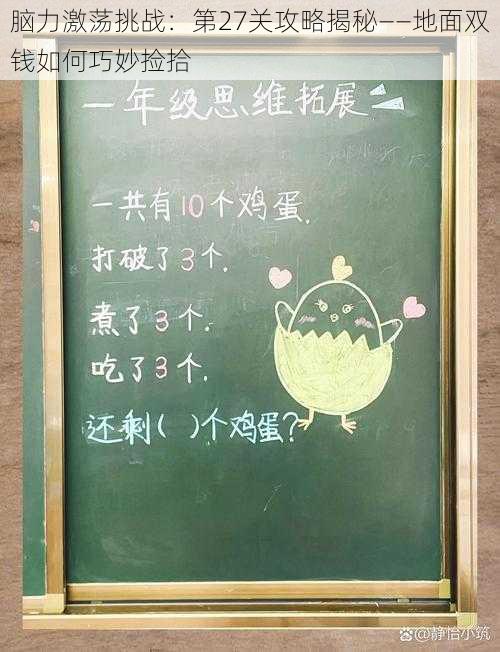 脑力激荡挑战：第27关攻略揭秘——地面双
钱如何巧妙捡拾
一年级思维拓展
一共有10个鸡蛋.
打破了3个.
煮了3个.
吃了3个.
还剩( )个鸡蛋?
@静怡小筑